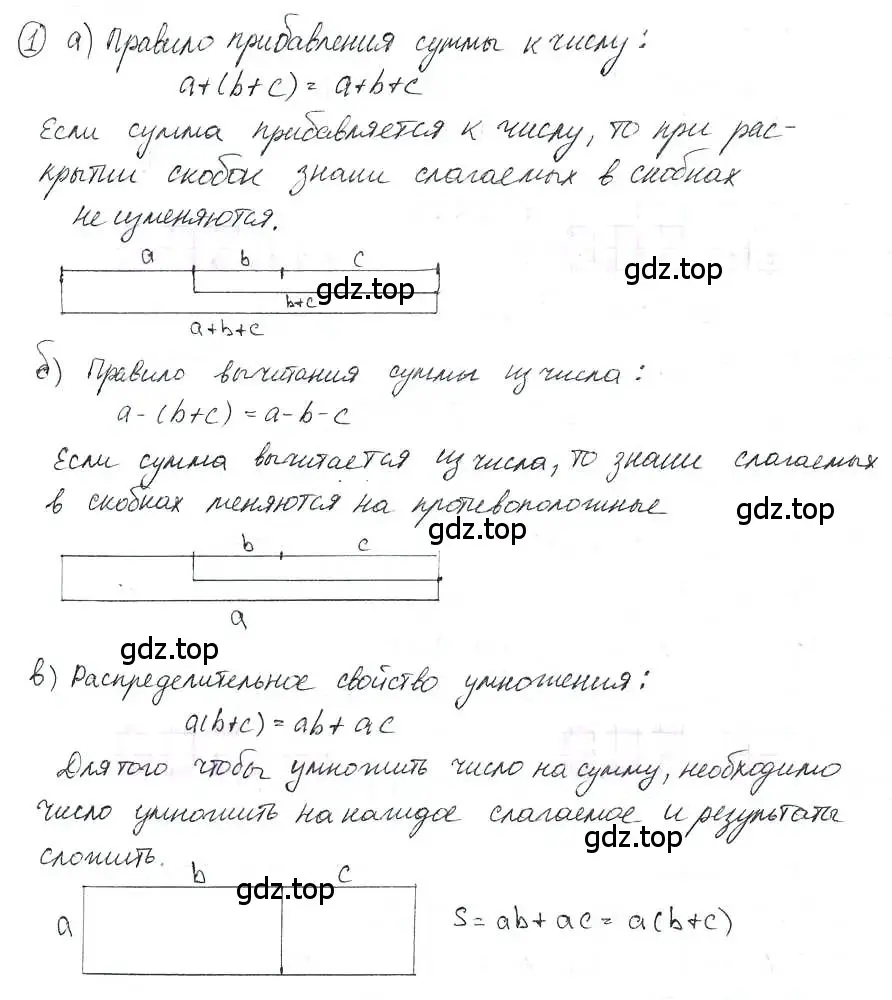 ① а) Правило прибавления суммы к числу:
a+(b+c) = a+b+c
Если сумма прибавляется к числу, то при рас-
крытии скобок знаки слагаемых в скобках
не изменяются.
a b c
gdz.top
b+c gdz.top
a+b+c
б) Правило вычитания суммы из числа:
a-(b+c) = a-b-c
Если сумма вычитается из числа, то знаки слагаемых
в скобках меняются на противоположные
gdz.top
gdz.top
b c
a
gdz.top
в) Распределительное свойство умножения:
a(b+c) = ab + ac
Для того чтобы умножить число на сумму, необходимо
число умножить на каждое слагаемое и результаты
gdz.top
сложить.
b c
gdz.top
a S = ab + ac = a(b+c)